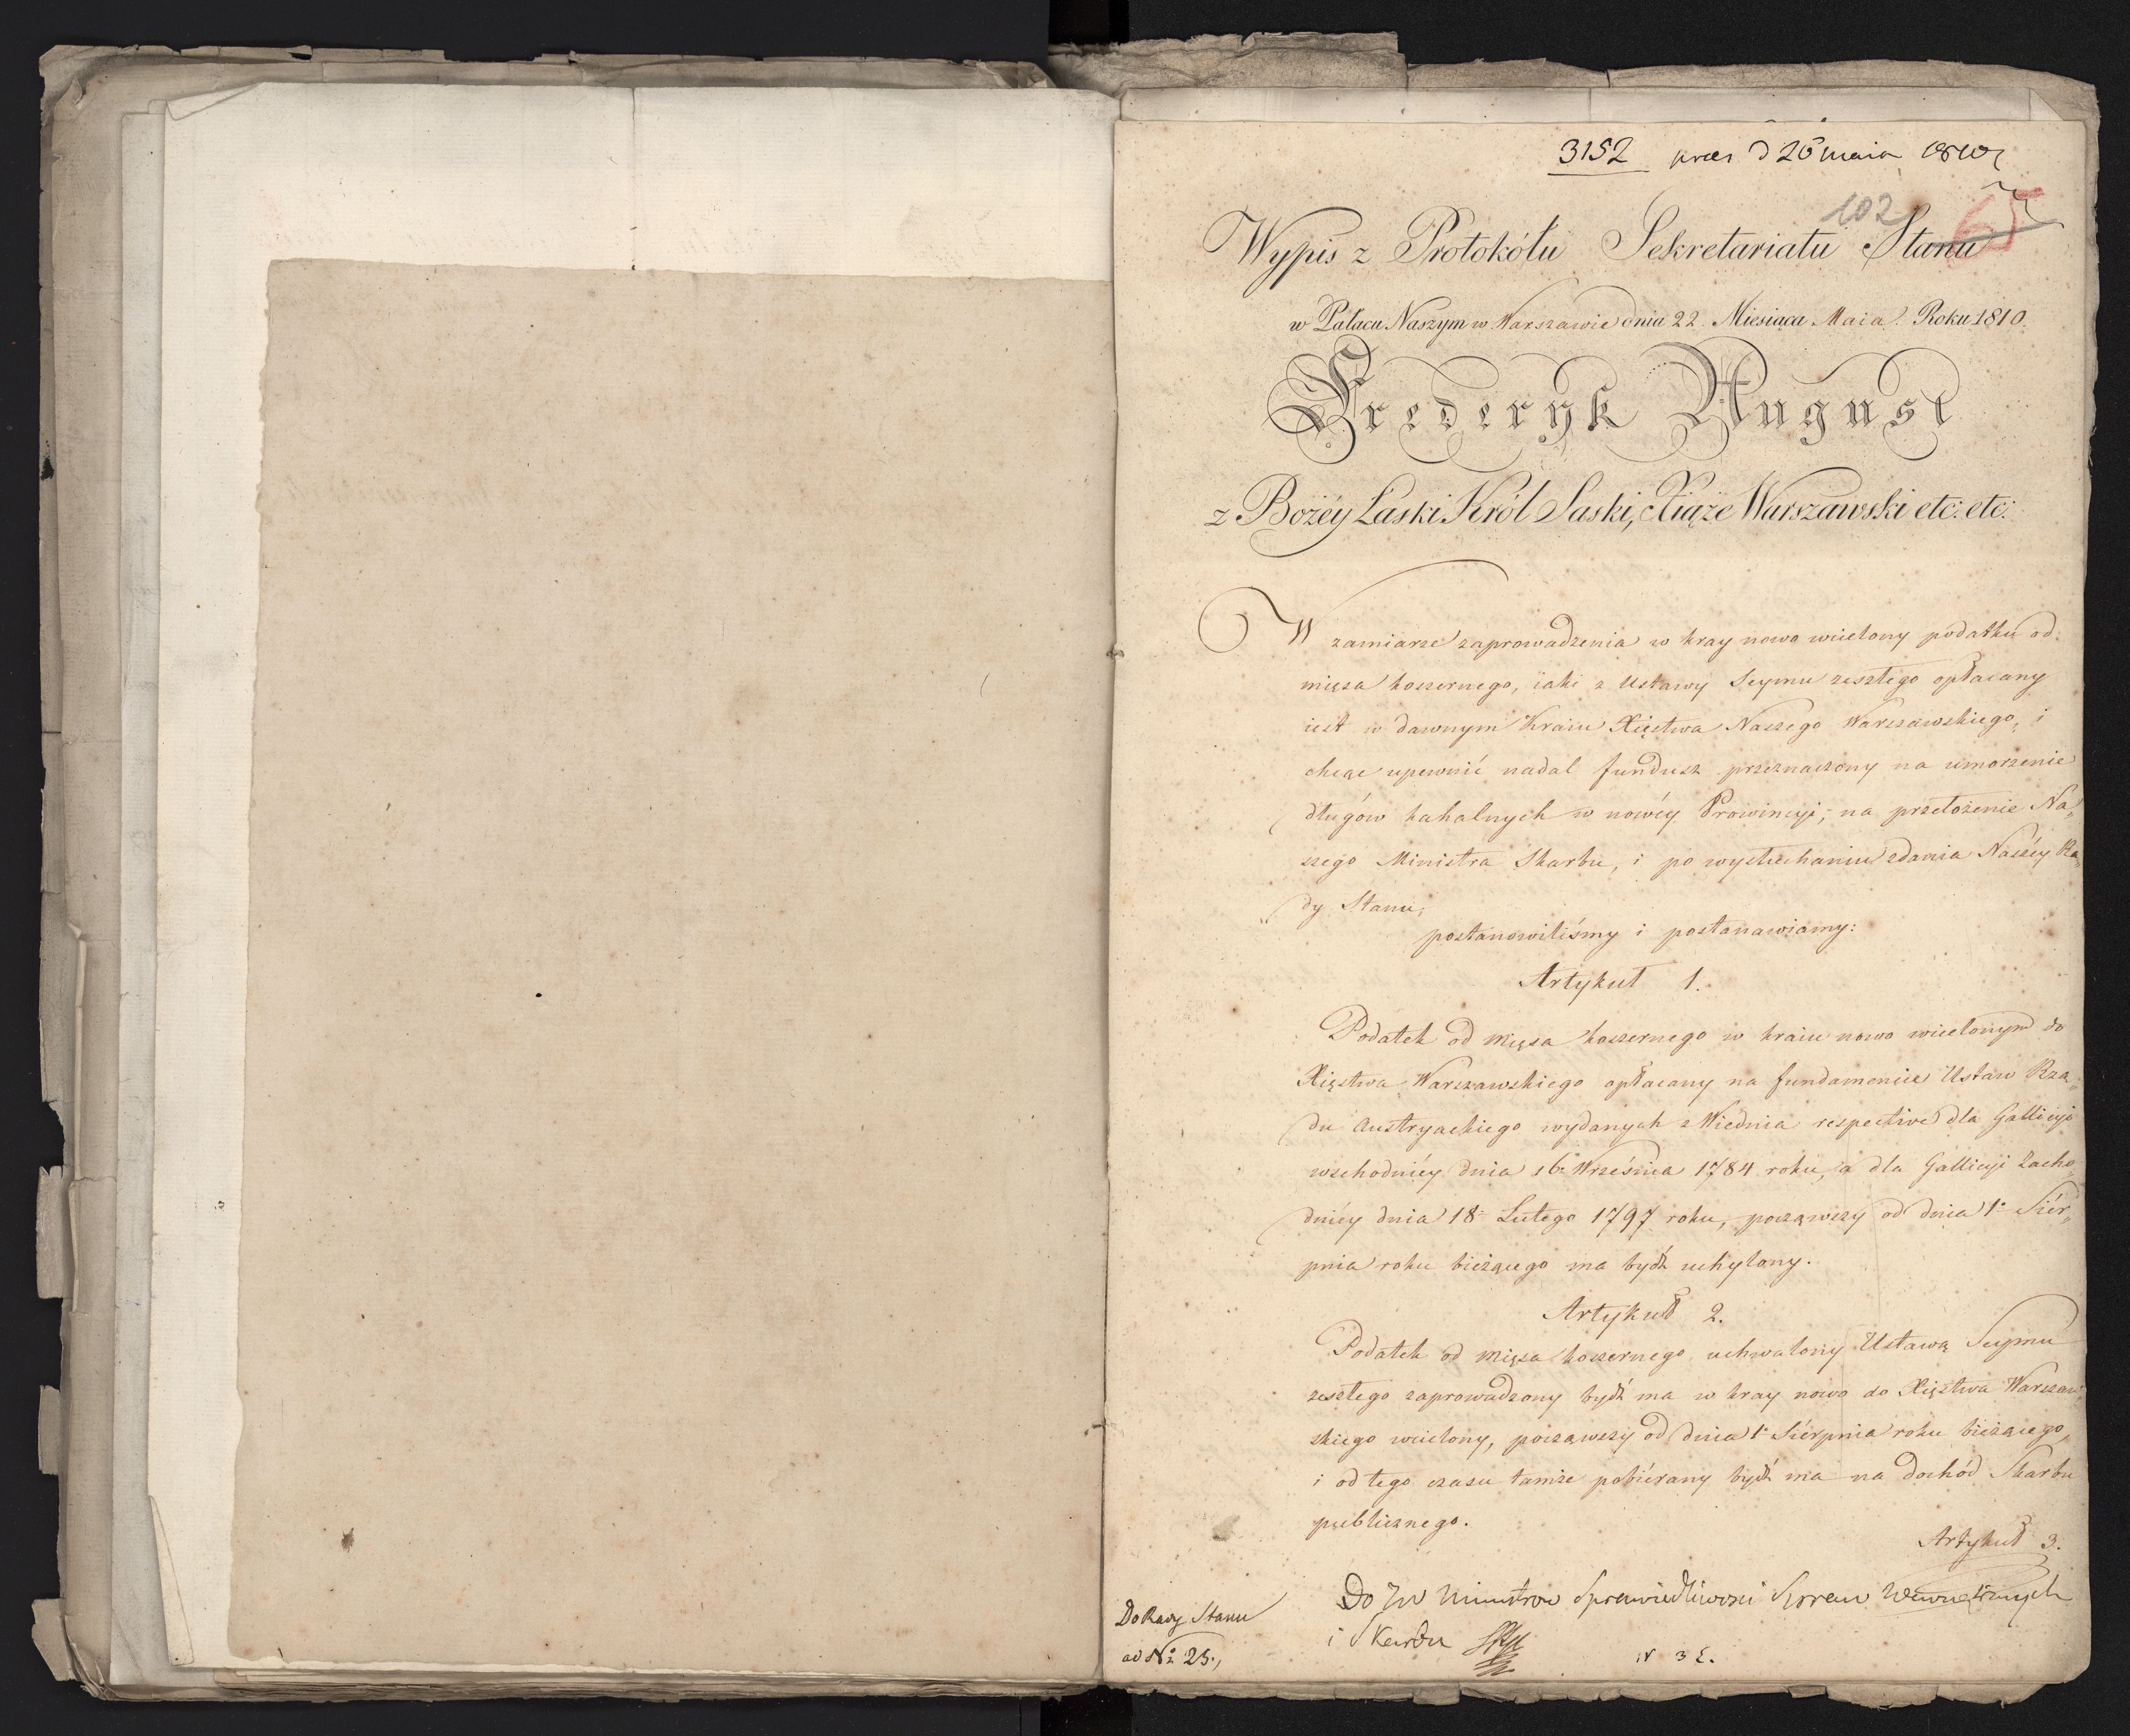 3152 præs d 26 maia 1810
102
65
Wypis z Protokółu Sekretariatu Stanu
w Pałacu Naszym w Warszawie dnia 22. Miesiąca Maia. Roku 1810.
Fryderyk August
z Bożéy Łaski Król Saski, Xiąże Warszawski etc: etc:
W zamiarze zaprowadzenia w kray nowo wcielony podatku od
mięsa koszernego, iaki z Ustawy Seymu zeszłego opłacany
iest w dawnym Kraiu Xięstwa Naszego Warszawskiego, i
chcąc upewnić nadal fundusz przeznaczony na umorzenie
długów kahalnych w nowéy Prowincyi; na przełożenie Na„
szego Ministra Skarbu, i po wysłuchaniu zdania Naszéy Ra„
dy Stanu,
postanowiliśmy i postanawiamy:
Artykuł 1.
Podatek od mięsa koszernego w kraiu nowo wcielonym do
Xięstwa Warszawskiego opłacany na fundamencie Ustaw Rzą„
du Austryackiego wydanych z Wiednia respective dla Gallicyi
wschodniéy dnia 16. Września 1784 roku, a dla Gallicyi Zacho„
dniéy dnia 18. Lutego 1797 roku, począwszy od dnia 1. Siér„
pnia roku bieżącego ma bydź uchylony.
Artykuł 2.
Podatek od mięsa koszernego uchwalony Ustawą Seymu
zeszłego zaprowadzony bydź ma w kray nowo do Xięstwa Warszaw„
skiego wcielony, począwszy od dnia 1. Siérpnia roku bieżącego,
i od tego czasu tamże pobiérany bydź ma na dochód Skarbu
publicznego.
Artykuł 3.
Do JW Ministrow Sprawiedliwosci Spraw Wewnętrznych
i Skarbu
Do Rady Stanu
ad No 25.,